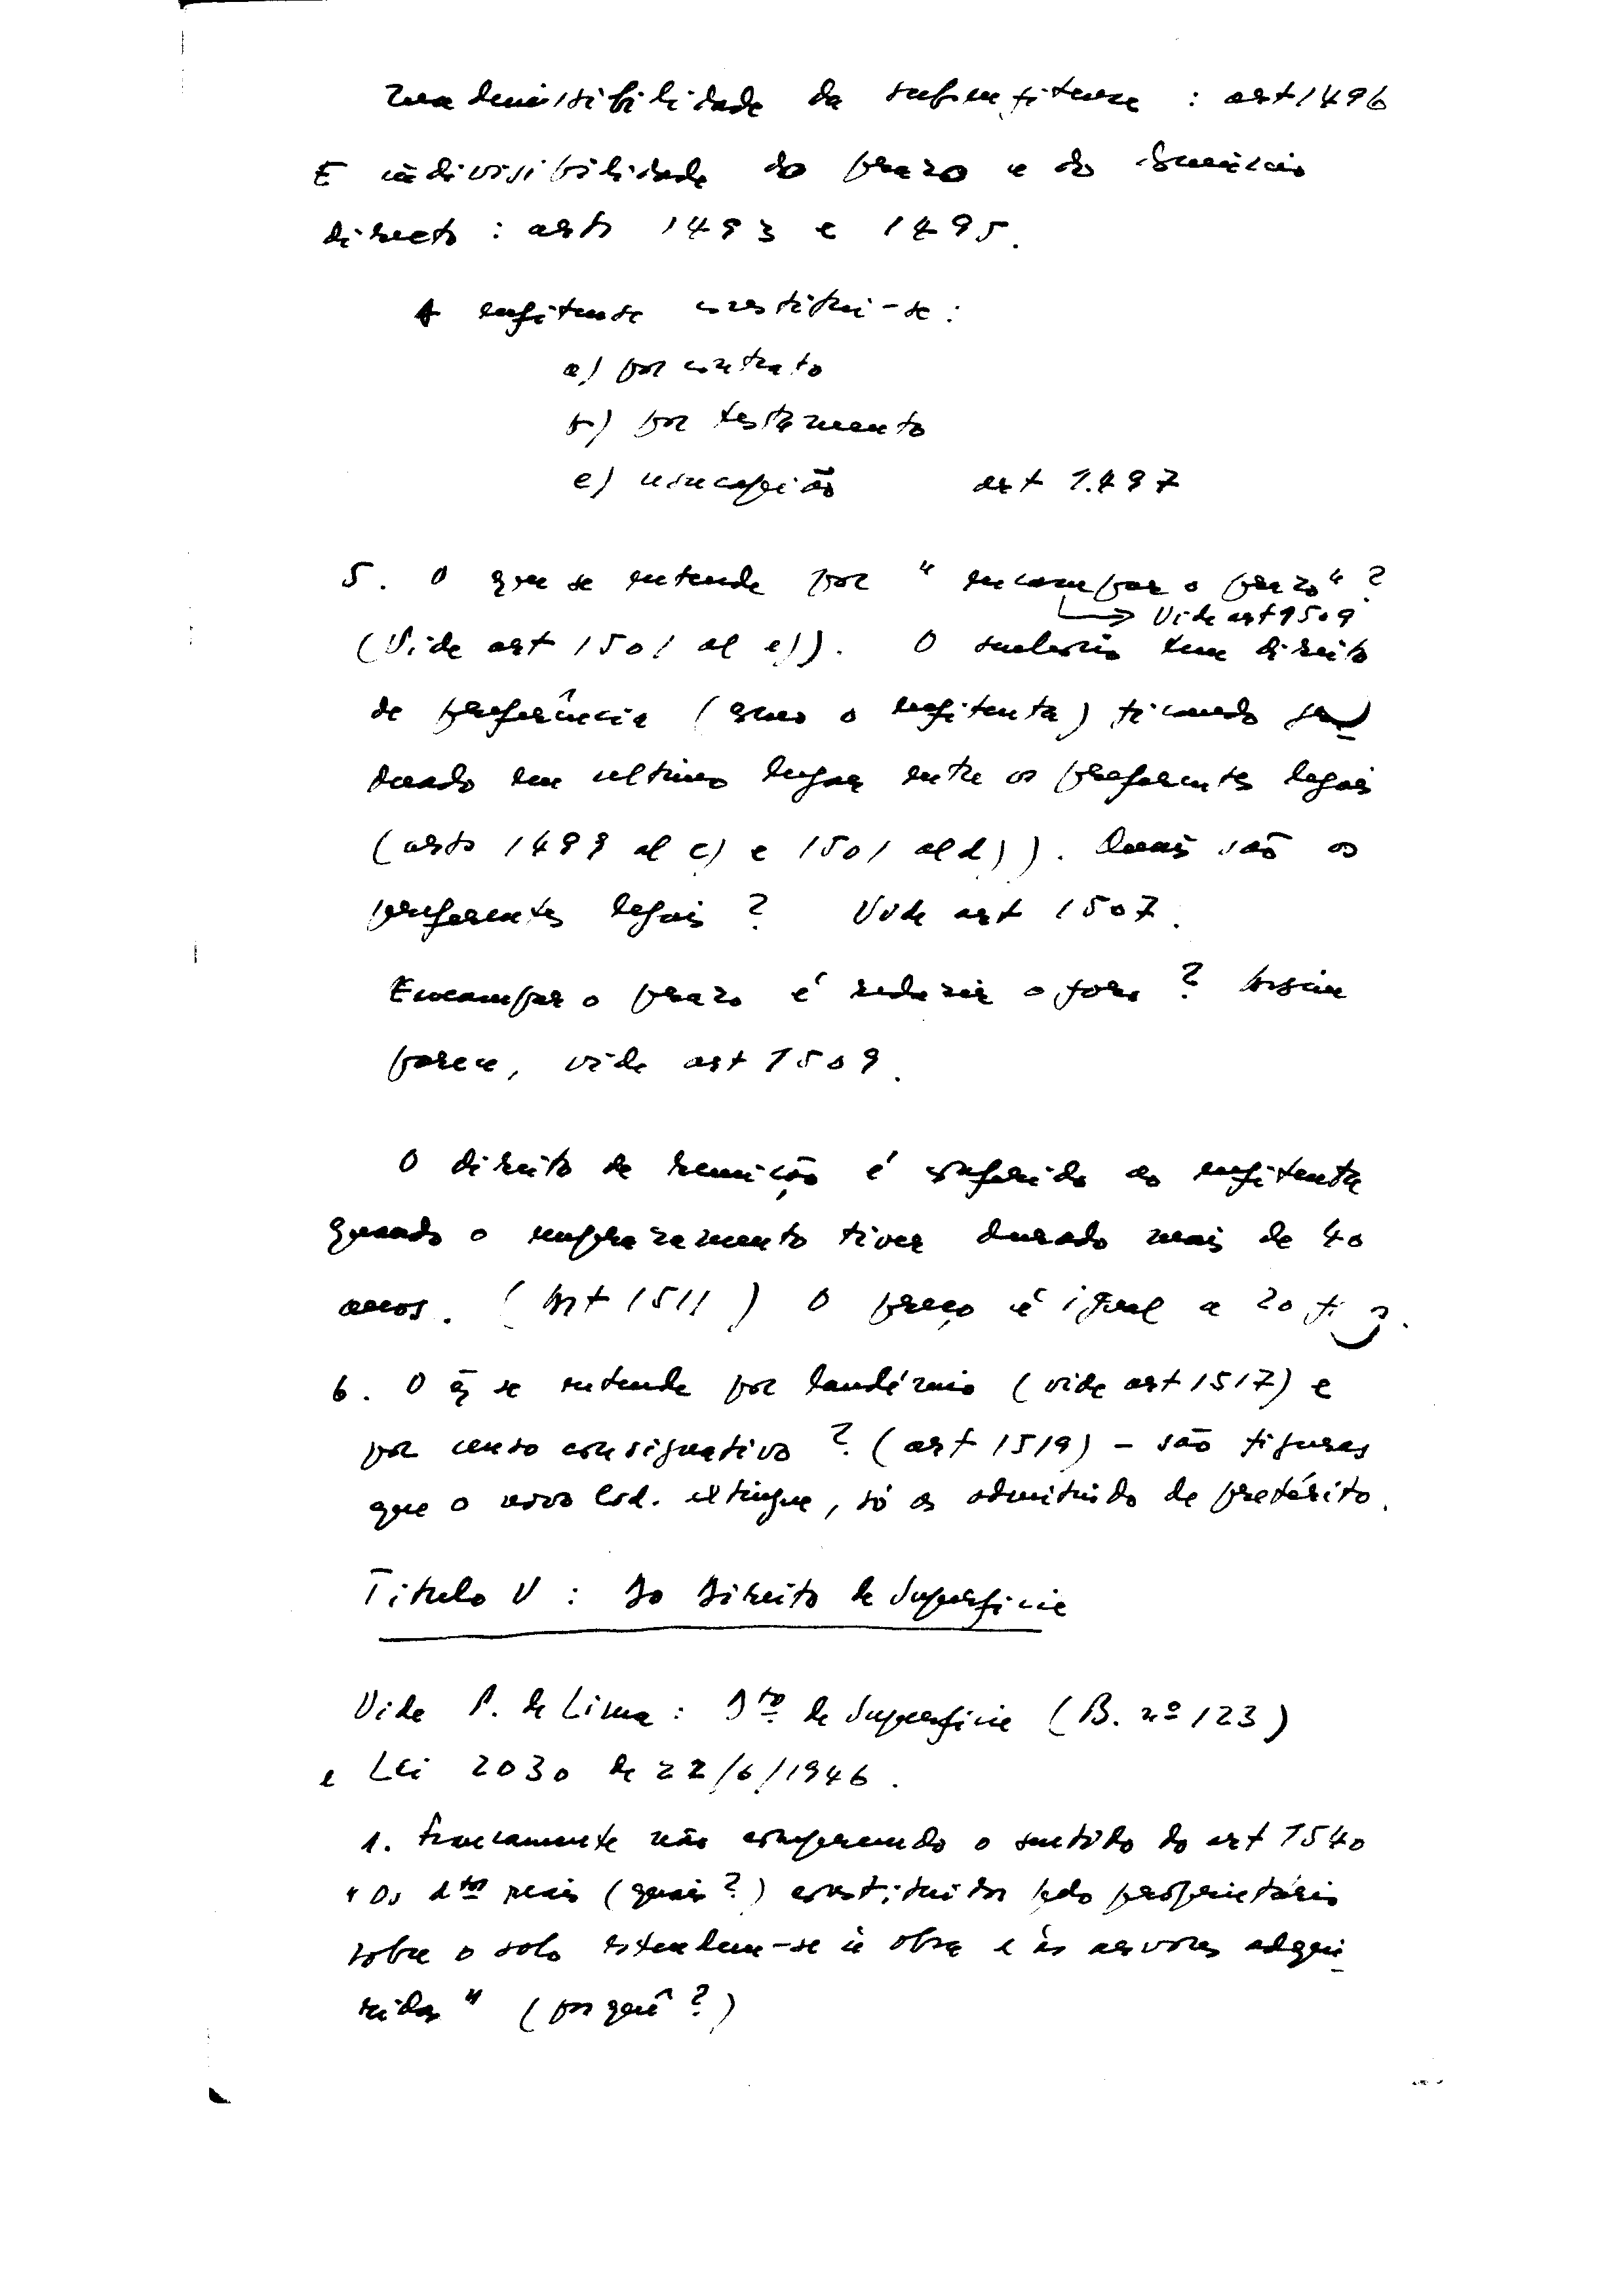 Inadmissibilidade da subenfiteuse : art 1496
E indivisibilidade do prazo e do domínio
directo : artos 1493 e 1495.
A enfiteuse constitui-se :
a) por contrato
b) por testamento
c) usucapião art 1.497
5. O que se entende por "encampar o prazo" ?
→ Vide art 1509
(Vide art 1501 al e)). O senhorio tem direito
de preferência (como o enfiteuta) ficando
em ultimo lugar entre os preferentes legais
(artos 1499 al c) e 1501 al d)). Quais são os
preferentes legais ? Vide art 1507.
Encampar o prazo é reduzir o foro ? Assim
parece, vide art 1509.
O direito de remição é conferido ao enfiteuta
quando o emprazamento tiver durado mais de 40
anos. (Art 1511) O preço é igual a 20
6. O q̃ se entende por laudémio (vide art 1517) e
por censo consignativo ? (art 1519) - são figuras
que o novo Cod. extingue, só as admitindo de pretérito.
Titulo V : Do Direito de Superficie
Vide P. de Lima : Dto de Superficie (B. nº 123)
e Lei 2030 de 22/6/1946.
1. Francamente não compreendo o sentido do art 1540
"Os dtos reais (quais ?) constituidos pelo proprietário
sobre o solo estendem-se à obra e às arvores adqui
ridas" (por quê ?)